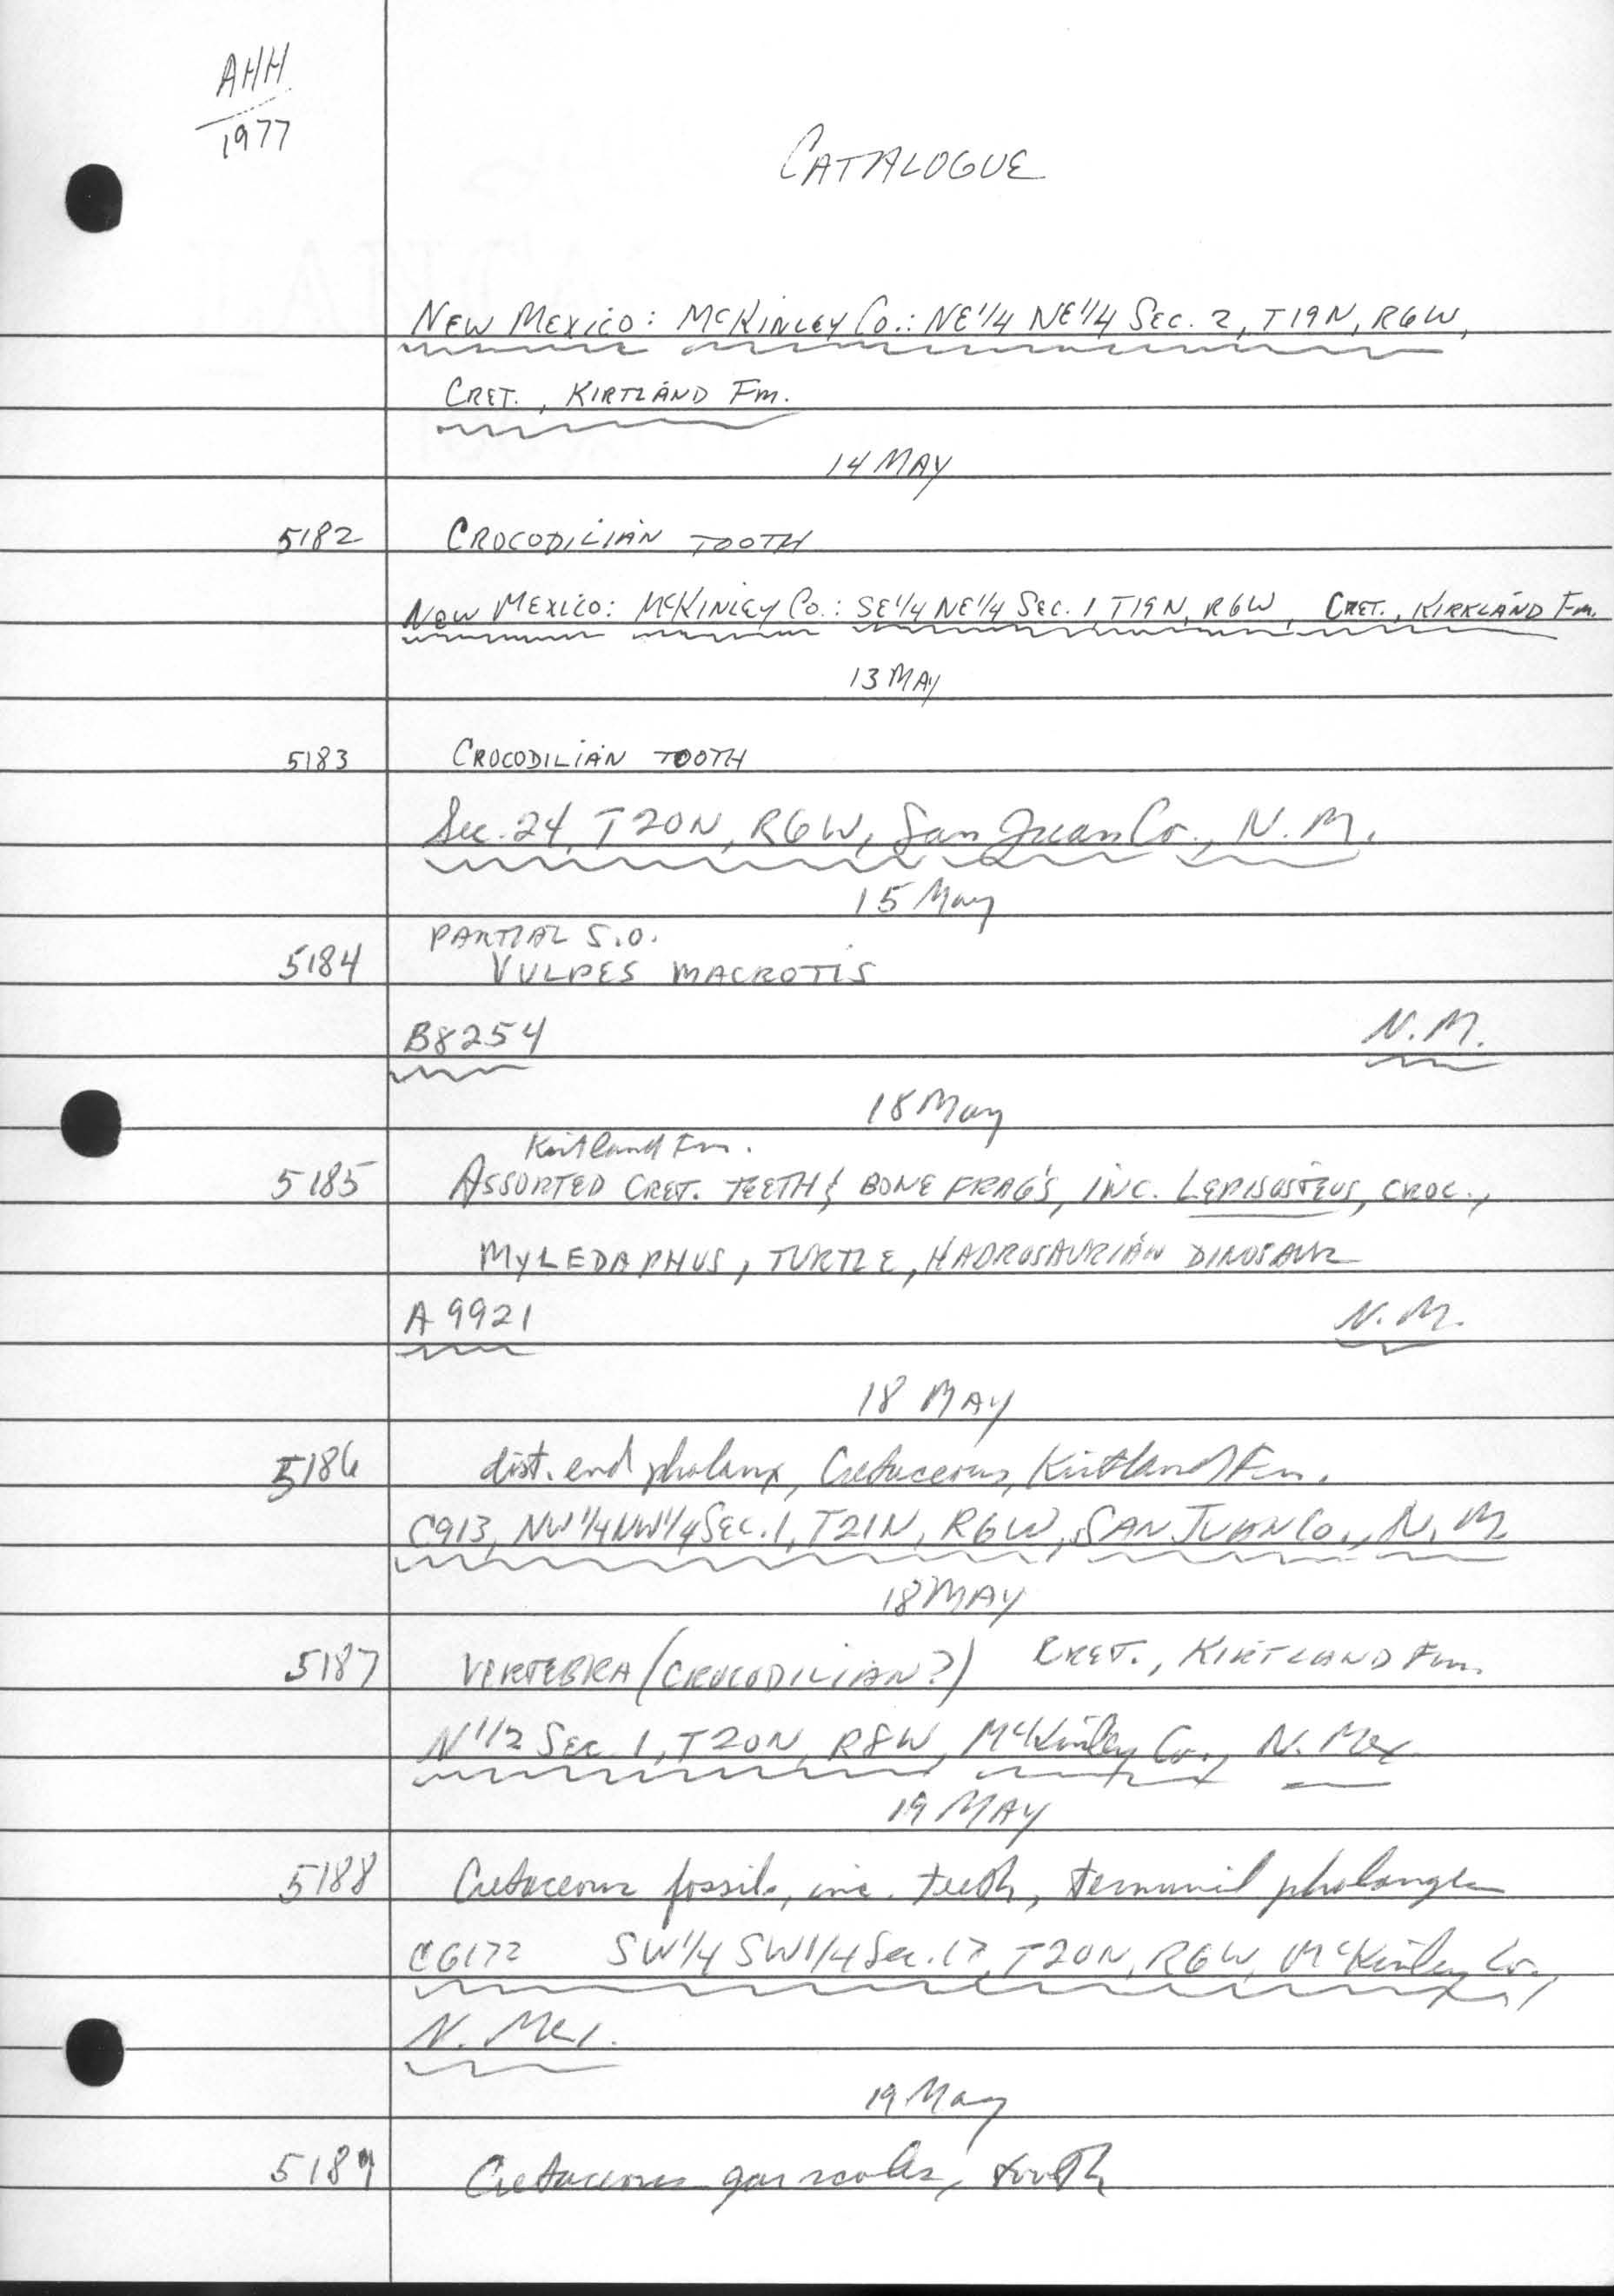 AHH
1977
CATALOGUE
NEW MEXICO: MCKINLEY CO.: NE1/4 NE1/4 SEC. 2, T19N, R6W,
CRET., KIRTLAND FM.
14 MAY
5182 CROCODILIAN TOOTH
NEW MEXICO: MCKINLEY CO.: SE1/4 NE1/4 SEC. 1 T19N, R6W, CRET., KIRKLAND FM.
13 MAY
5183 CROCODILIAN TOOTH
Sec. 24, T20N, R6W, San Juan Co., N.M.
15 May
PARTIAL S.O.
5184 VULPES MACROTIS
B8254 N.M.
18 May
Kirtland Fm.
5185 ASSORTED CRET. TEETH & BONE FRAG'S, INC. LEPISOSTEUS, CROC.,
MYLEDAPHUS, TURTLE, HADROSAURIAN DINOSAUR
A 9921 N.M.
18 MAY
5186 dist. end phalanx, Cretaceous, Kirtland Fm.
C913, NW1/4NW1/4 SEC. 1, T21N, R6W, SAN JUAN CO., N.M
18 MAY
5187 VERTEBRA (CROCODILIAN?) CRET., KIRTLAND Fm.
N1/2 SEC. 1, T20N, R8W, McKinley Co., N. Mex
19 MAY
5188 Cretaceous fossils, inc. teeth, terminal phalanges
C6172 SW1/4 SW1/4 Sec. 17, T20N, R6W, McKinley Co.,
N. Mex.
19 May
5189 Cretaceous gar scales, tooth